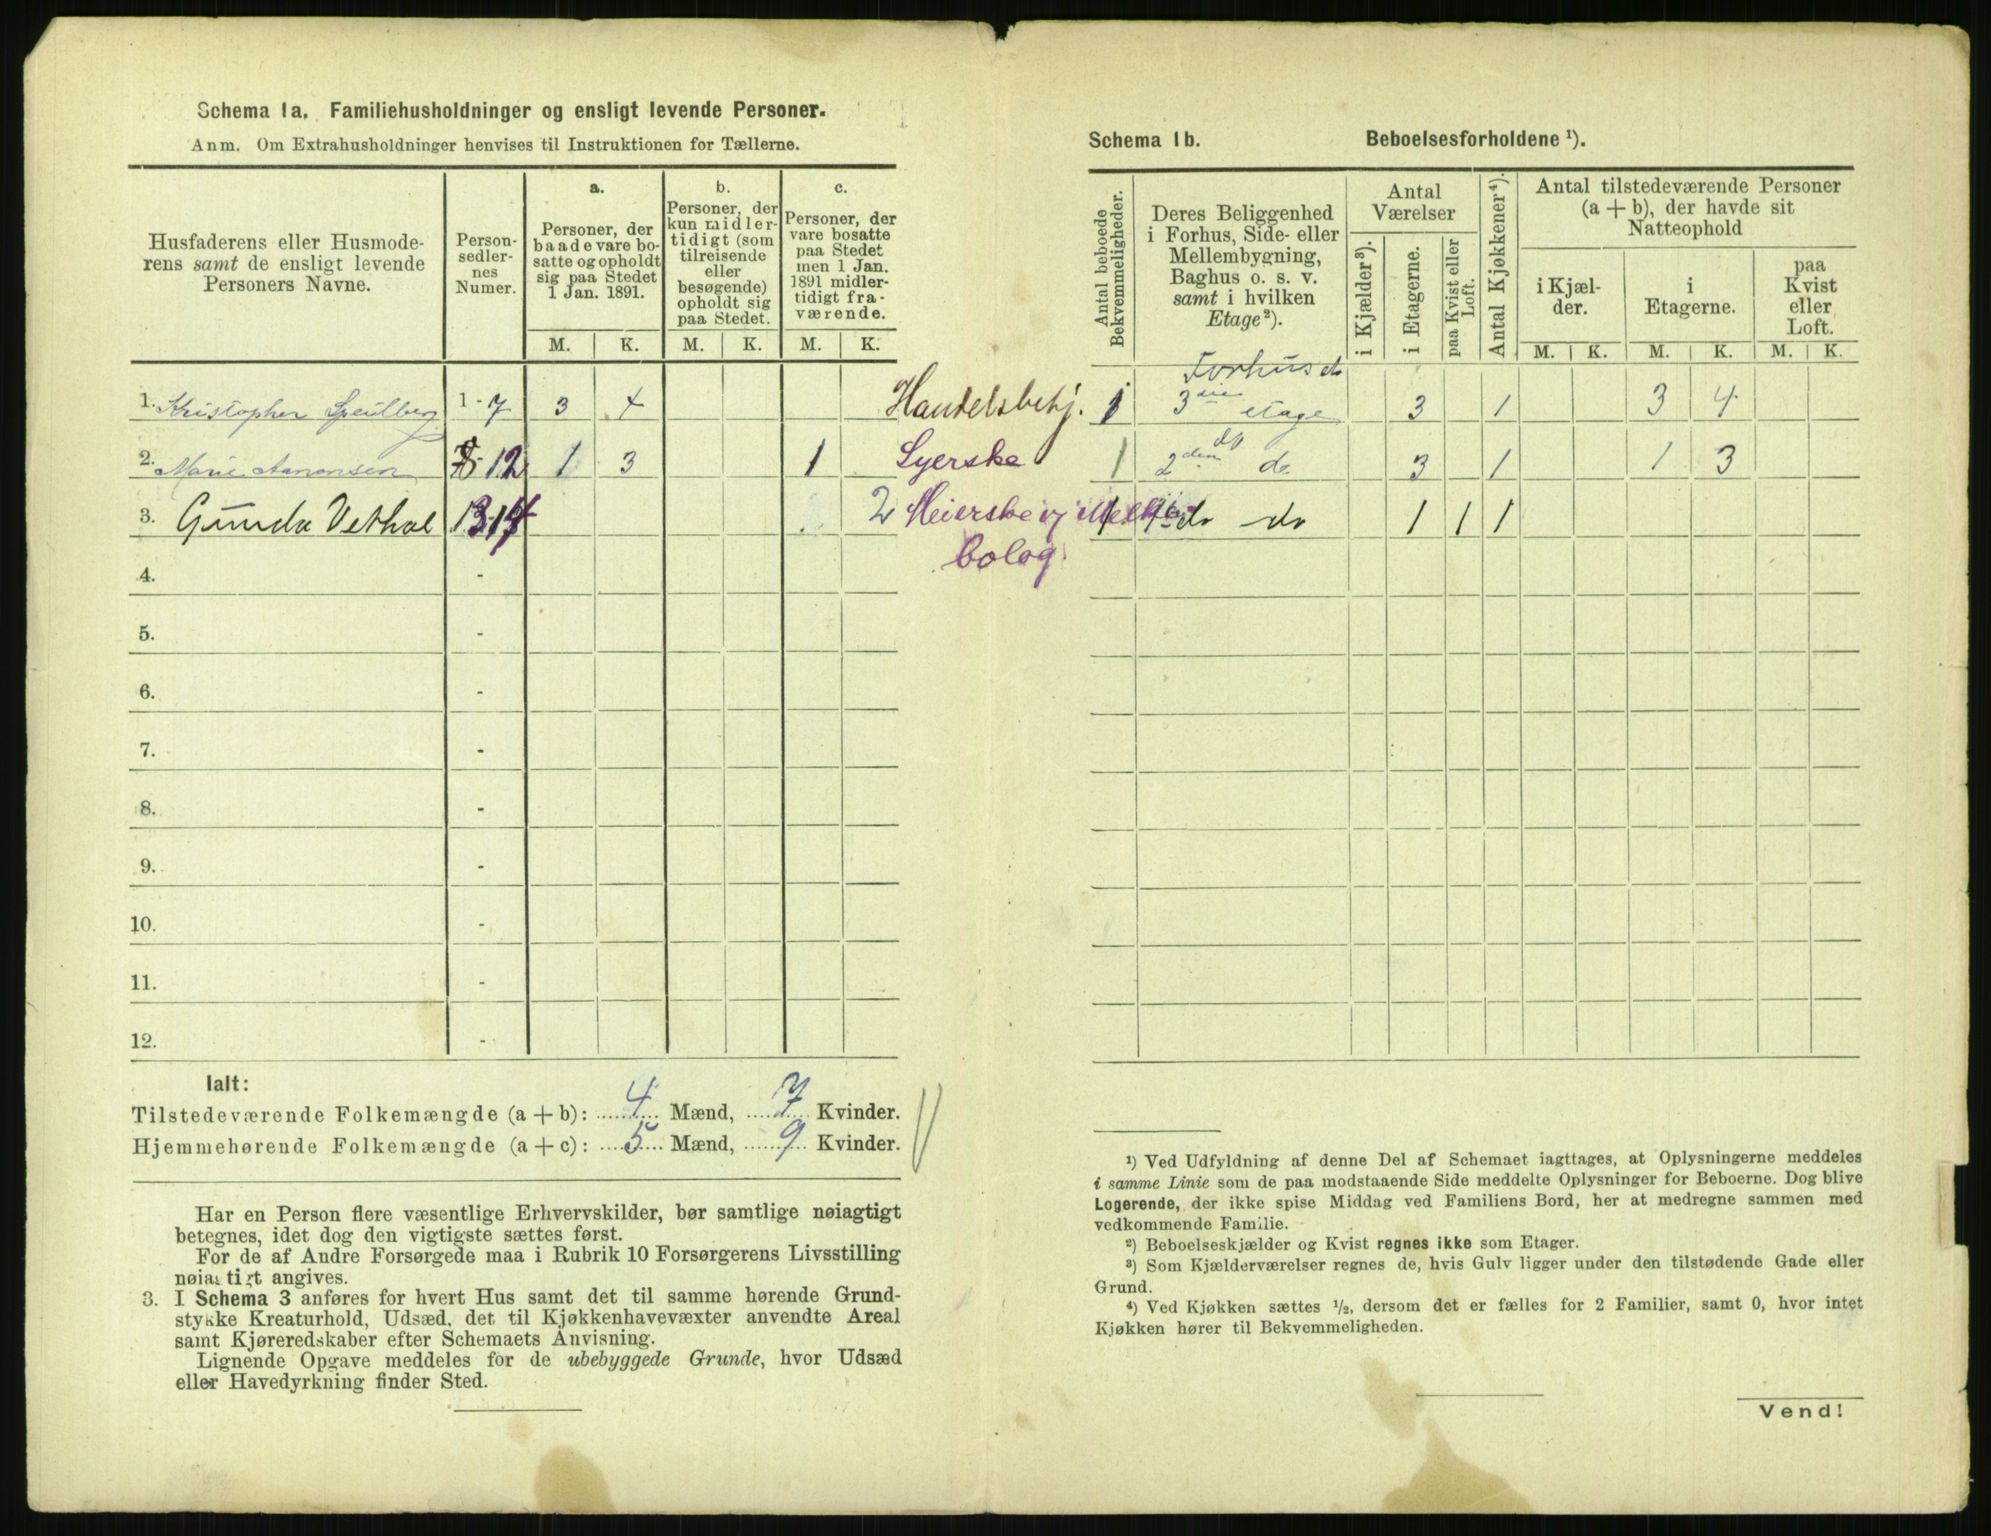 Schema 1a. Familiehusholdninger og ensligt levende Personer.
Anm. Om Extrahusholdninger henvises til Instruktionen for Tællerne.
Husfaderens eller Husmode-
rens samt de ensligt levende
Personers Navne.
Person-
sedler-
nes
Numer.
a.
Personer, der
baade vare bo-
satte og opholdt
sig paa Stedet
1 Jan. 1891.
b.
Personer, der
kun midler-
tidigt (som
tilreisende
eller
besøgende)
opholdt sig
paa Stedet.
c.
Personer, der
vare bosatte
paa Stedet
men 1 Jan.
1891 midler-
tidigt fra-
værende.
M. K. M. K. M. K.
1. Kristopher 1-7 3 4 Handelsbetj.
2. Marie Aanonsen 12 1 3 1 Syerske
3. Gunda Vethal 13-14 2 Meierske i
bolag.
4. -
5. -
6. -
7. -
8. -
9. -
10. -
11. -
12. -
Ialt:
Tilstedeværende Folkemængde (a + b): 4 Mænd, 7 Kvinder.
Hjemmehørende Folkemængde (a + c): 5 Mænd, 9 Kvinder.
Har en Person flere væsentlige Erhvervskilder, bør samtlige nøiagtigt
betegnes, idet dog den vigtigste sættes først.
For de af Andre Forsørgede maa i Rubrik 10 Forsørgerens Livsstilling
nøiagtigt angives.
3. I Schema 3 anføres for hvert Hus samt det til samme hørende Grund-
stykke Kreaturhold, Udsæd, det til Kjøkkenhavevæxter anvendte Areal
samt Kjøreredskaber efter Schemaets Anvisning.
Lignende Opgave meddeles for de ubebyggede Grunde, hvor Udsæd
eller Havedyrkning finder Sted.
Schema 1b. Beboelsesforholdene ¹).
Antal beboede
Bekvemmeligheder.
Deres Beliggenhed
i Forhus, Side- eller
Mellembygning,
Baghus o. s. v.
samt i hvilken
Etage²).
Antal
Værelser
i Kjælder³).
i Etagerne.
paa Kvist eller
Loft.
Antal Kjøkkener⁴).
Antal tilstedeværende Personer
(a + b), der havde sit
Natteophold
i Kjæl-
der.
i
Etagerne.
paa
Kvist
eller
Loft.
M. K. M. K. M. K.
Forhus
1 3die etage 3 1 3 4
do
1 2den do 3 1 1 3
1 do do 1 1 1
¹) Ved Udfyldning af denne Del af Schemaet iagttages, at Oplysningerne meddeles
i samme Linie som de paa modstaaende Side meddelte Oplysninger for Beboerne. Dog blive
Logerende, der ikke spise Middag ved Familiens Bord, her at medregne sammen med
vedkommende Familie.
²) Beboelseskjælder og Kvist regnes ikke som Etager.
³) Som Kjælderværelser regnes de, hvis Gulv ligger under den tilstødende Gade eller
Grund.
⁴) Ved Kjøkken sættes ½, dersom det er fælles for 2 Familier, samt 0, hvor intet
Kjøkken hører til Bekvemmeligheden.
Vend!